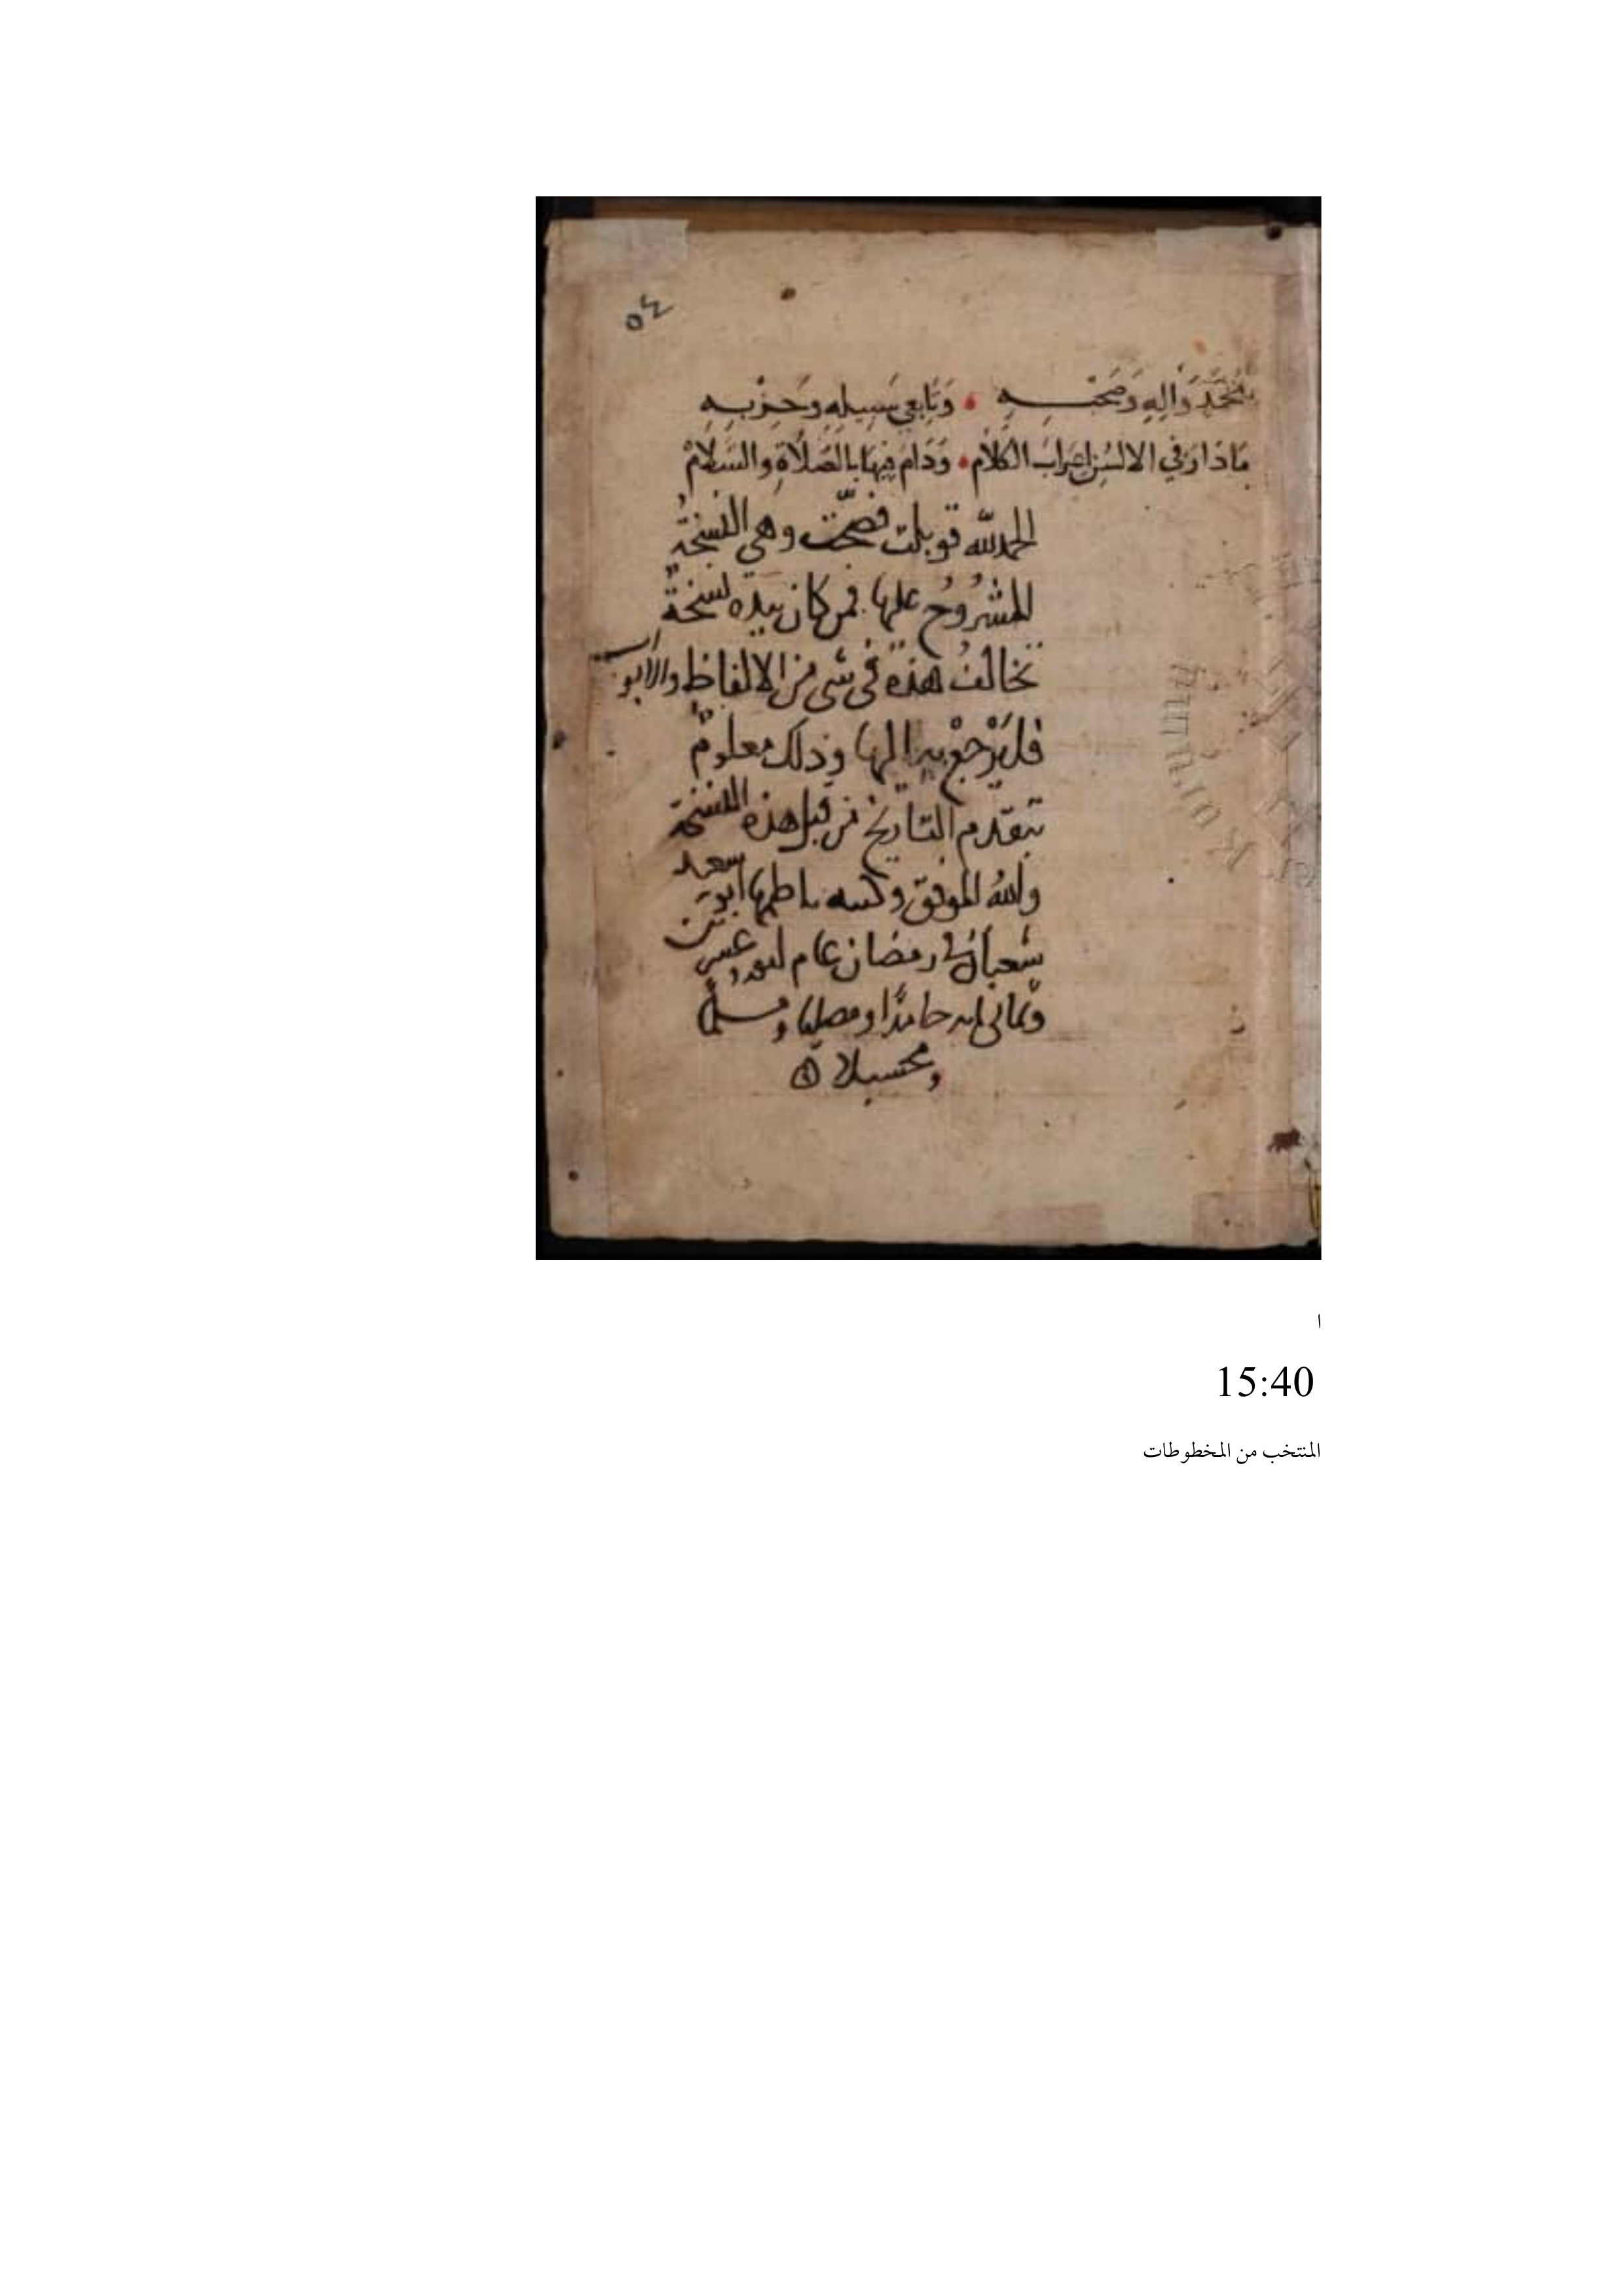 ٥٤
مُحَمَّدٍ وَآلِهِ وَصَحْبِهِ • وَتَابِعِي سَبِيلِهِ وَحِزْبِهِ
مَا دَارَ فِي الالسُنِ اعرَابُ الكَلَام • وَدَامَ فِيهَا بِالصَّلَاةِ والسَّلَامْ
الحمد للّه قوبلت فصحّت وهي النسخةُ
المشرُوحُ عليها فمن كان بيده نسخةٌ
تخالفُ هذه في شي من الالفاظ والابواب
فليَرْجعْ بها اليها وذلك معلومٌ
بتقدم التاريخ من قبل هذه النسخة
واللهُ الموفق وكتبه ناظمها ابو سعيد
شعبان في رمضان عام
وثماني مايه حامدًا ومصليا ومسلمًا
ومحسبلا
ا
15:40
المنتخب من المخطوطات